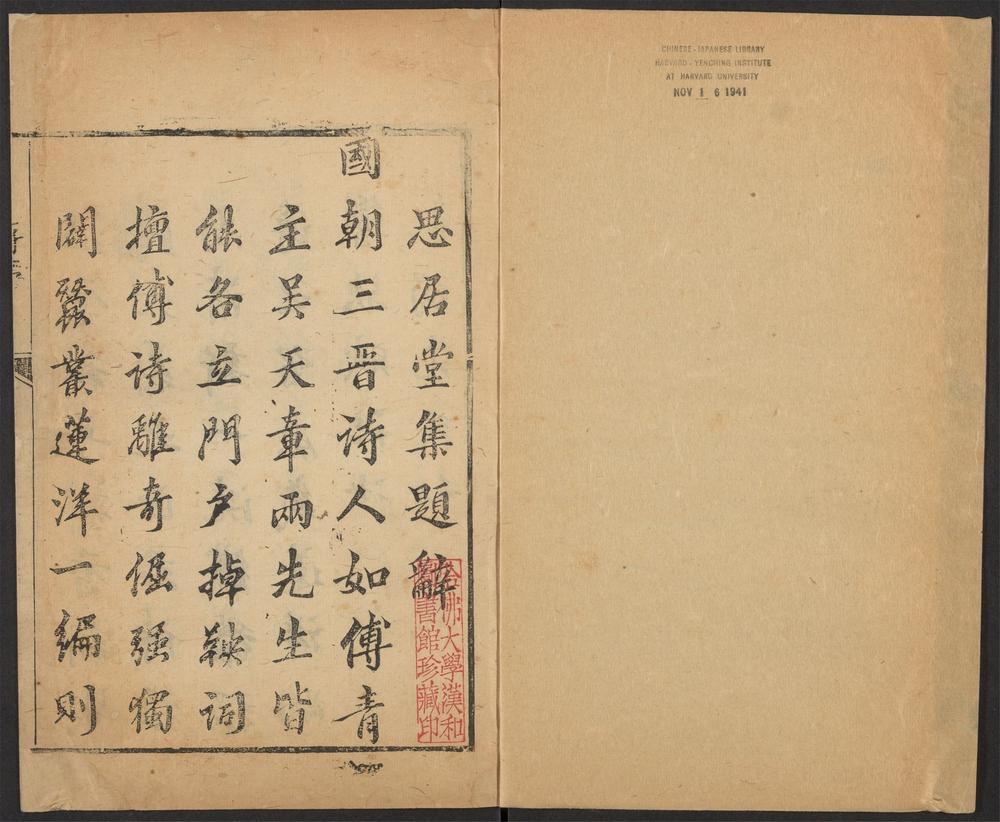 CHINESE-JAPANESE LIBRARY
HARVARD-YENCHING INSTITUTE
AT HARVARD UNIVERSITY
NOV 16 1941
思居堂集題辭
國朝三晋诗人如傅青
主吴天章兩先生皆
能各立門戶掉鞅词
壇傅诗離奇倔强獨
闢蠶叢蓮洋一编则
哈佛大學漢和
圖書館珍藏印